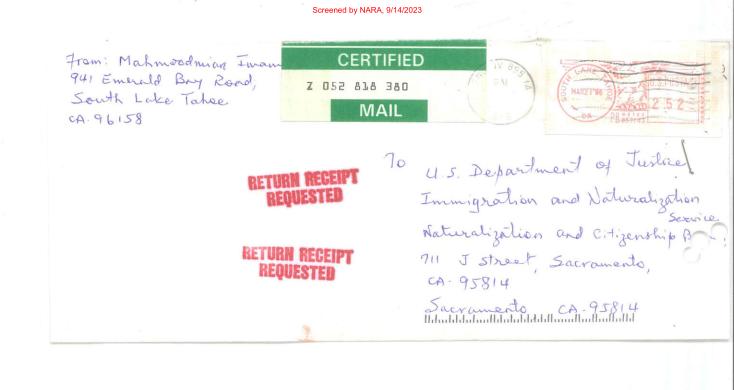 Screened by NARA, 9/14/2023
From: Mahmoodmian Imam
941 Emerald Bay Road,
South Lake Tahoe
CA. 96158
CERTIFIED
Z 052 818 380
MAIL
SOUTH LAKE TAHOE
CA
U.S. POSTAGE
2.52
PB METER
RETURN RECEIPT
REQUESTED
RETURN RECEIPT
REQUESTED
To
U.S. Department of Justice
Immigration and Naturalization
Service
Naturalization and Citizenship
711 J street, Sacramento,
CA. 95814
Sacramento CA. 95814